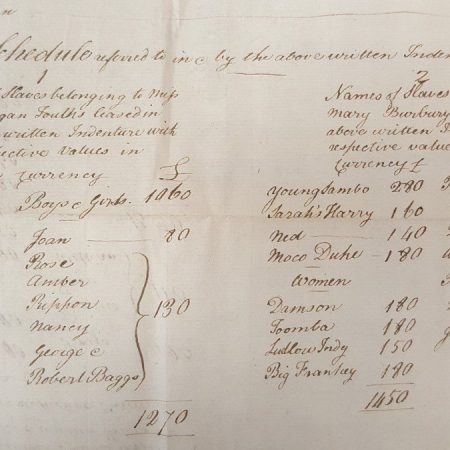 Schedule referred to in & by the above written Inden
1
Slaves belonging to Miss
gan Fouth's leased in
written Indenture with
ective Values in
Currency £
Boys & Girls. 1060
Joan 80
Rose
Amber
Rippon
Nancy
George &
Robert Baggs
130
1270
2
Names of Slaves
Mary Burbury
above written I
respective value
Currency £
Young Sambo 280
Sarah's Harry 160
Ned 140
Moco Duke 180
Women
Damson 180
Toomba 180
Ludlow Indy 150
Big Frankey 180
1450